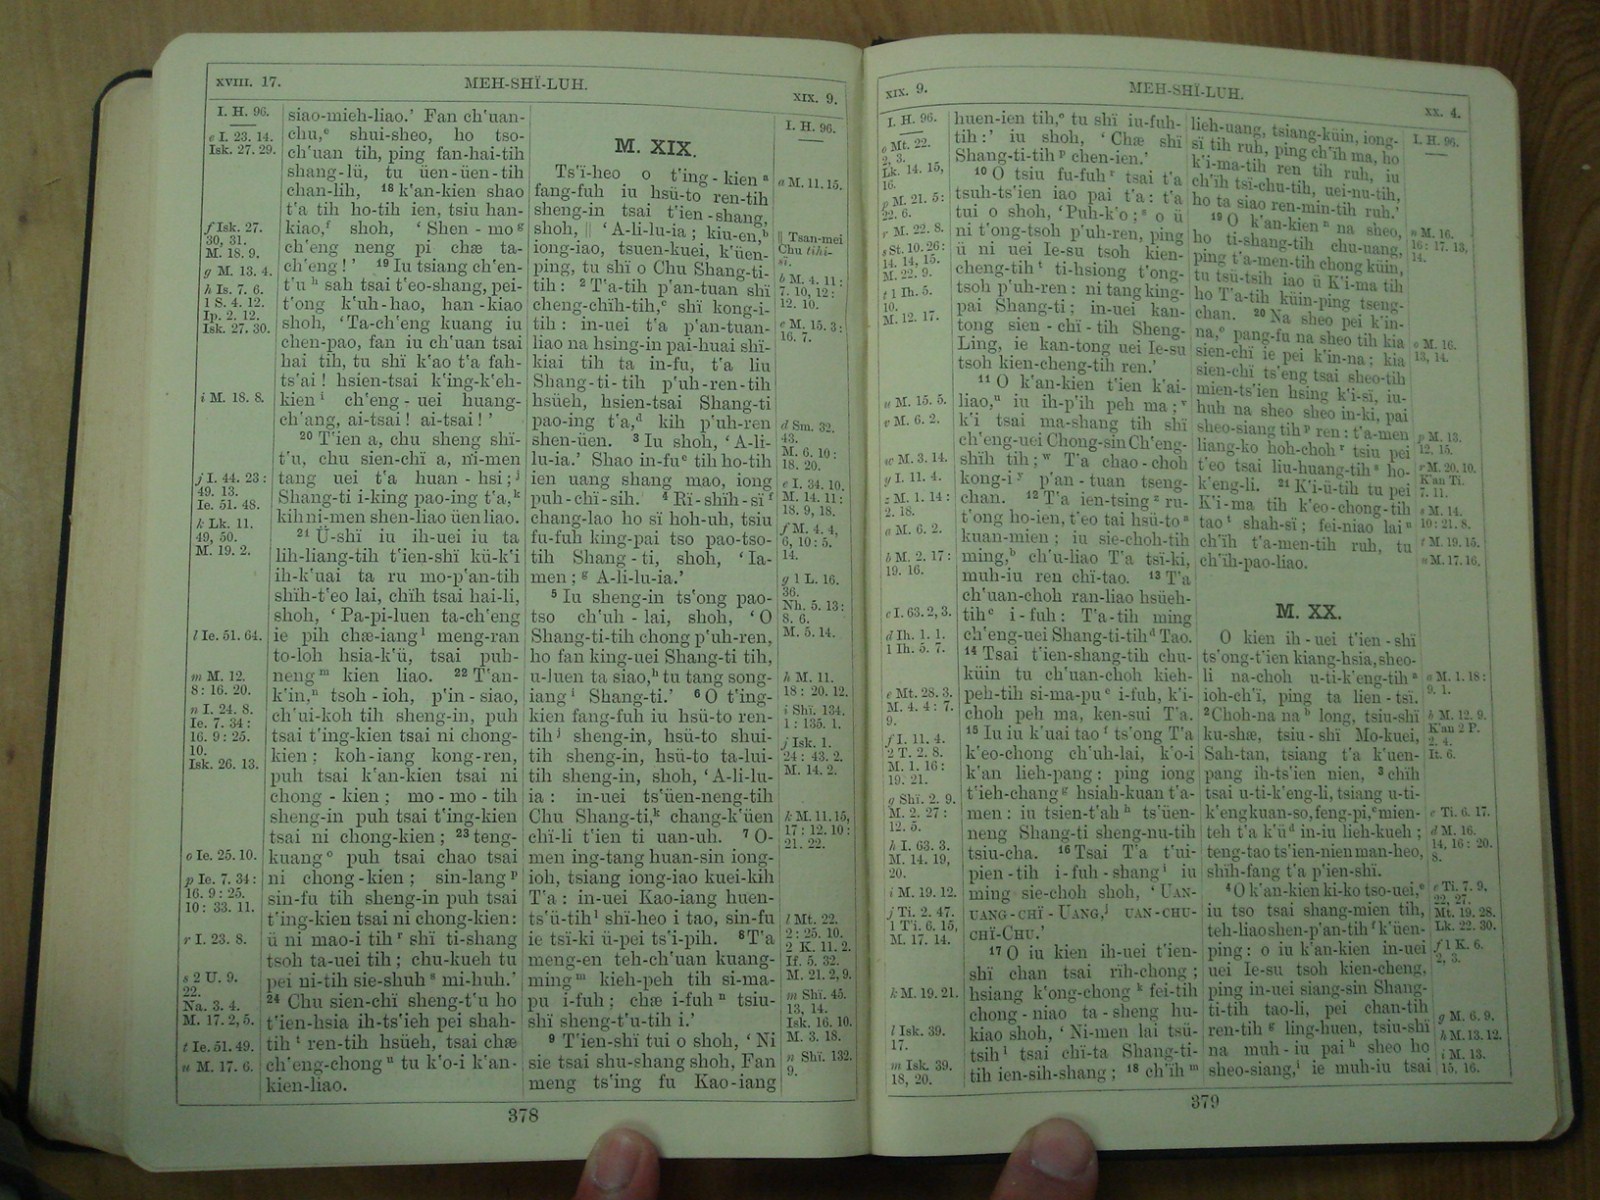 XVIII. 17.
MEH-SHÏ-LUH.
XIX. 9.
I. H. 96.
e I. 23. 14.
Isk. 27. 29.
f Isk. 27.
30, 31.
M. 18. 9.
g M. 13. 4.
h Is. 7. 6.
1 S. 4. 12.
Ip. 2. 12.
Isk. 27. 30.
i M. 18. 8.
j I. 44. 23 :
49. 13.
Ie. 51. 48.
k Lk. 11.
49, 50.
M. 19. 2.
l Ie. 51. 64.
m M. 12.
8 : 16. 20.
n I. 24. 8.
Ie. 7. 34 :
16. 9 : 25.
10.
Isk. 26. 13.
o Ie. 25. 10.
p Ie. 7. 34 :
16. 9 : 25.
10 : 33. 11.
r I. 23. 8.
s 2 U. 9.
22.
Na. 3. 4.
M. 17. 2, 5.
t Ie. 51. 49.
u M. 17. 6.
siao-mieh-liao.’ Fan ch'uan-
chu,e shui-sheo, ho tso-
ch'uan tih, ping fan-hai-tih
shang-lü, tu üen-üen-tih
chan-lih, 18 k'an-kien shao
t'a tih ho-tih ien, tsiu han-
kiao,f shoh, ‘ Shen - mo g
ch'eng neng pi chæ ta-
ch'eng ! ’ 19 Iu tsiang ch'en-
t'u h sah tsai t'eo-shang, pei-
t'ong k'uh-hao, han-kiao
shoh, ‘Ta-ch'eng kuang iu
chen-pao, fan iu ch'uan tsai
hai tih, tu shï k'ao t'a fah-
ts'ai ! hsien-tsai k'ing-k'eh-
kien i ch'eng - uei huang-
ch'ang, ai-tsai ! ai-tsai ! ’
20 T'ien a, chu sheng shï-
t'u, chu sien-chï a, ni-men
tang uei t'a huan - hsi ; j
Shang-ti i-king pao-ing t'a,k
kih ni-men shen-liao üen liao.
21 Ü-shï iu ih-uei iu ta
lih-liang-tih t'ien-shï kü-k'i
ih-k'uai ta ru mo-p'an-tih
shïh-t'eo lai, chïh tsai hai-li,
shoh, ‘ Pa-pi-luen ta-ch'eng
ie pih chæ-iang l meng-ran
to-loh hsia-k'ü, tsai puh-
neng m kien liao. 22 T'an-
k'in,n tsoh - ioh, p'in - siao,
ch'ui-koh tih sheng-in, puh
tsai t'ing-kien tsai ni chong-
kien ; koh-iang kong-ren,
puh tsai k'an-kien tsai ni
chong - kien ; mo - mo - tih
sheng-in puh tsai t'ing-kien
tsai ni chong-kien ; 23 teng-
kuang o puh tsai chao tsai
ni chong - kien ; sin-lang p
sin-fu tih sheng-in puh tsai
t'ing-kien tsai ni chong-kien :
ü ni mao-i tih r shï ti-shang
tsoh ta-uei tih ; chu-kueh tu
pei ni-tih sie-shuh s mi-huh.’
24 Chu sien-chï sheng-t'u ho
t'ien-hsia ih-ts'ieh pei shah-
tih t ren-tih hsüeh, tsai chæ
ch'eng-chong u tu k'o-i k'an-
kien-liao.
M. XIX.
Ts'ï-heo o t'ing - kien a
fang-fuh iu hsü-to ren-tih
sheng-in tsai t'ien-shang,
shoh, || ‘ A-li-lu-ia ; kiu-en,b
iong-iao, tsuen-kuei, k'üen-
ping, tu shï o Chu Shang-ti-
tih : 2 T'a-tih p'an-tuan shï
cheng-chïh-tih,c shï kong-i-
tih : in-uei t'a p'an-tuan-
liao na hsing-in pai-huai shï-
kiai tih ta in-fu, t'a liu
Shang-ti-tih p'uh-ren-tih
hsüeh, hsien-tsai Shang-ti
pao-ing t'a,d kih p'uh-ren
shen-üen. 3 Iu shoh, ‘ A-li-
lu-ia.’ Shao in-fu e tih ho-tih
ien uang shang mao, iong
puh-chï-sih. 4 Rï-shïh-sï f
chang-lao ho sï hoh-uh, tsiu
fu-fuh king-pai tso pao-tso-
tih Shang - ti, shoh, ‘ Ia-
men ; g A-li-lu-ia.’
5 Iu sheng-in ts'ong pao-
tso ch'uh - lai, shoh, ‘ O
Shang-ti-tih chong p'uh-ren,
ho fan king-uei Shang-ti tih,
u-luen ta siao,h tu tang song-
iang i Shang-ti.’ 6 O t'ing-
kien fang-fuh iu hsü-to ren-
tih j sheng-in, hsü-to shui-
tih sheng-in, hsü-to ta-lui-
tih sheng-in, shoh, ‘ A-li-lu-
ia : in-uei ts'üen-neng-tih
Chu Shang-ti,k chang-k'üen
chï-li t'ien ti uan-uh. 7 O-
men ing-tang huan-sin iong-
ioh, tsiang iong-iao kuei-kih
T'a : in-uei Kao-iang huen-
ts'ü-tih l shï-heo i tao, sin-fu
ie tsï-ki ü-pei ts'i-pih. 8 T'a
meng-en teh-ch'uan kuang-
ming m kieh-peh tih si-ma-
pu i-fuh ; chæ i-fuh n tsiu-
shï sheng-t'u-tih i.’
9 T'ien-shï tui o shoh, ‘ Ni
sie tsai shu-shang shoh, Fan
meng ts'ing fu Kao-iang
I. H. 96.
a M. 11. 15.
|| Tsan-mei
Chu tihi-
sï.
b M. 4. 11 :
7. 10, 12 :
12. 10.
c M. 15. 3 :
16. 7.
d Sm. 32.
43.
M. 6. 10 :
18. 20.
e I. 34. 10.
M. 14. 11 :
18. 9, 18.
f M. 4. 4,
6, 10 : 5.
14.
g 1 L. 16.
36.
Nh. 5. 13 :
8. 6.
M. 5. 14.
h M. 11.
18 : 20. 12.
i Shï. 134.
1 : 135. 1.
j Isk. 1.
24 : 43. 2.
M. 14. 2.
k M. 11. 15,
17 : 12. 10 :
21. 22.
l Mt. 22.
2 : 25. 10.
2 K. 11. 2.
If. 5. 32.
M. 21. 2, 9.
m Shï. 45.
13, 14.
Isk. 16. 10.
M. 3. 18.
n Shï. 132.
9.
378
XIX. 9.
MEH-SHÏ-LUH.
XX. 4.
I. H. 96.
o Mt. 22.
2, 3.
Lk. 14. 15,
16.
p M. 21. 5 :
22. 6.
r M. 22. 8.
s St. 10. 26 :
14. 14, 15.
M. 22. 9.
t 1 Ih. 5.
10.
M. 12. 17.
u M. 15. 5.
v M. 6. 2.
w M. 3. 14.
y I. 11. 4.
z M. 1. 14 :
2. 18.
a M. 6. 2.
b M. 2. 17 :
19. 16.
c I. 63. 2, 3.
d Ih. 1. 1.
1 Ih. 5. 7.
e Mt. 28. 3.
M. 4. 4 : 7.
9.
f I. 11. 4.
2 T. 2. 8.
M. 1. 16 :
19. 21.
g Shï. 2. 9.
M. 2. 27 :
12. 5.
h I. 63. 3.
M. 14. 19,
20.
i M. 19. 12.
j Ti. 2. 47.
1 T'i. 6. 15,
M. 17. 14.
k M. 19. 21.
l Isk. 39.
17.
m Isk. 39.
18, 20.
huen-ien tih,o tu shï iu-fuh-
tih :’ iu shoh, ‘ Chæ shï
Shang-ti-tih p chen-ien.’
10 O tsiu fu-fuh r tsai t'a
tsuh-ts'ien iao pai t'a : t'a
tui o shoh, ‘Puh-k'o ; s o ü
ni t'ong-tsoh p'uh-ren, ping
ü ni uei Ie-su tsoh kien-
cheng-tih t ti-hsiong t'ong-
tsoh p'uh-ren : ni tang king-
pai Shang-ti ; in-uei kan-
tong sien - chï - tih Sheng-
Ling, ie kan-tong uei Ie-su
tsoh kien-cheng-tih ren.’
11 O k'an-kien t'ien k'ai-
liao,u iu ih-p'ih peh ma ; v
k'i tsai ma-shang tih shï
ch'eng-uei Chong-sin Ch'eng-
shïh tih ; w T'a chao-choh
kong-i y p'an - tuan tseng-
chan. 12 T'a ien-tsing z ru-
t'ong ho-ien, t'eo tai hsü-to a
kuan-mien ; iu sie-choh-tih
ming,b ch'u-liao T'a tsï-ki,
muh-iu ren chï-tao. 13 T'a
ch'uan-choh ran-liao hsüeh-
tih c i-fuh : T'a-tih ming
ch'eng-uei Shang-ti-tih d Tao.
14 Tsai t'ien-shang-tih chu-
küin tu ch'uan-choh kieh-
peh-tih si-ma-pu e i-fuh, k'i-
choh peh ma, ken-sui T'a.
15 Iu iu k'uai tao f ts'ong T'a
k'eo-chong ch'uh-lai, k'o-i
k'an lieh-pang : ping iong
t'ieh-chang g hsiah-kuan t'a-
men : iu tsien-t'ah h ts'üen-
neng Shang-ti sheng-nu-tih
tsiu-cha. 16 Tsai T'a t'ui-
pien-tih i-fuh-shang i iu
ming sie-choh shoh, ‘ UAN-
UANG-CHÏ - UANG,j UAN-CHU-
CHÏ-CHU.’
17 O iu kien ih-uei t'ien-
shï chan tsai rih-chong ;
hsiang k'ong-chong k fei-tih
chong - niao ta - sheng hu-
kiao shoh, ‘ Ni-men lai tsü-
tsih l tsai chï-ta Shang-ti-
tih ien-sih-shang ; 18 ch'ïh m
lieh-uang, tsiang-küin, iong-
sï tih ruh, ping ch'ïh ma, ho
k'i-ma-tih ren tih ruh, iu
ch'ïh tsï-chu-tih, uei-nu-tih,
ho ta siao ren-min-tih ruh.’
19 O k'an-kien n na sheo,
ho ti-shang-tih chu-uang,
ping t'a-men-tih chong küin,
tu tsü-tsih iao ü K'i-ma tih
ho T'a-tih küin-ping tseng-
chan. 20 Na sheo pei k'in-
na,o pang-fu na sheo tih kia
sien-chï ie pei k'in-na ; kia
sien-chï ts'eng tsai sheo-tih
mien-ts'ien hsing k'i-si, iu-
huh na sheo sheo in-ki, pai
sheo-siang tih p ren : t'a-men
liang-ko hoh-choh r tsiu pei
t'eo tsai liu-huang-tih s ho-
k'eng-li. 21 K'i-ü-tih tu pei
K'i-ma tih k'eo-chong-tih
tao t shah-sï ; fei-niao lai u
ch'ïh t'a-men-tih ruh, tu
ch'ïh-pao-liao.
M. XX.
O kien ih - uei t'ien - shï
ts'ong-t'ien kiang-hsia, sheo-
li na-choh u-ti-k'eng-tih a
ioh-ch'ï, ping ta lien - tsï.
2 Choh-na na b long, tsiu-shï
ku-shæ, tsiu - shï Mo-kuei,
Sah-tan, tsiang t'a k'uen-
pang ih-ts'ien nien, 3 chïh
tsai u-ti-k'eng-li, tsiang u-ti-
k'eng kuan-so, feng-pi,c mien-
teh t'a k'ü d in-iu lieh-kueh ;
teng-tao ts'ien-nien man-heo,
shïh-fang t'a p'ien-shï.
4 O k'an-kien ki-ko tso-uei,e
iu tso tsai shang-mien tih,
teh-liao shen-p'an-tih f k'üen-
ping : o iu k'an-kien in-uei
uei Ie-su tsoh kien-cheng,
ping in-uei siang-sin Shang-
ti-tih tao-li, pei chan-tih
ren-tih g ling-huen, tsiu-shï
na muh - iu pai h sheo ho
sheo-siang,i ie muh-iu tsai
I. H. 96.
n M. 16.
16 : 17. 13,
14.
o M. 16.
13, 14.
p M. 13.
12. 15.
r M. 20. 10.
K'an Ti.
7. 11.
s M. 14.
10 : 21. 8.
t M. 19. 15.
u M. 17. 16.
a M. 1. 18 :
9. 1.
b M. 12. 9.
K'an 2 P.
2. 4.
It. 6.
c Ti. 6. 17.
d M. 16.
14, 16 : 20.
8.
e Ti. 7. 9.
22, 27.
Mt. 19. 28.
Lk. 22. 30.
f 1 K. 6.
2, 3.
g M. 6. 9.
h M. 13. 12.
i M. 13.
15, 16.
379